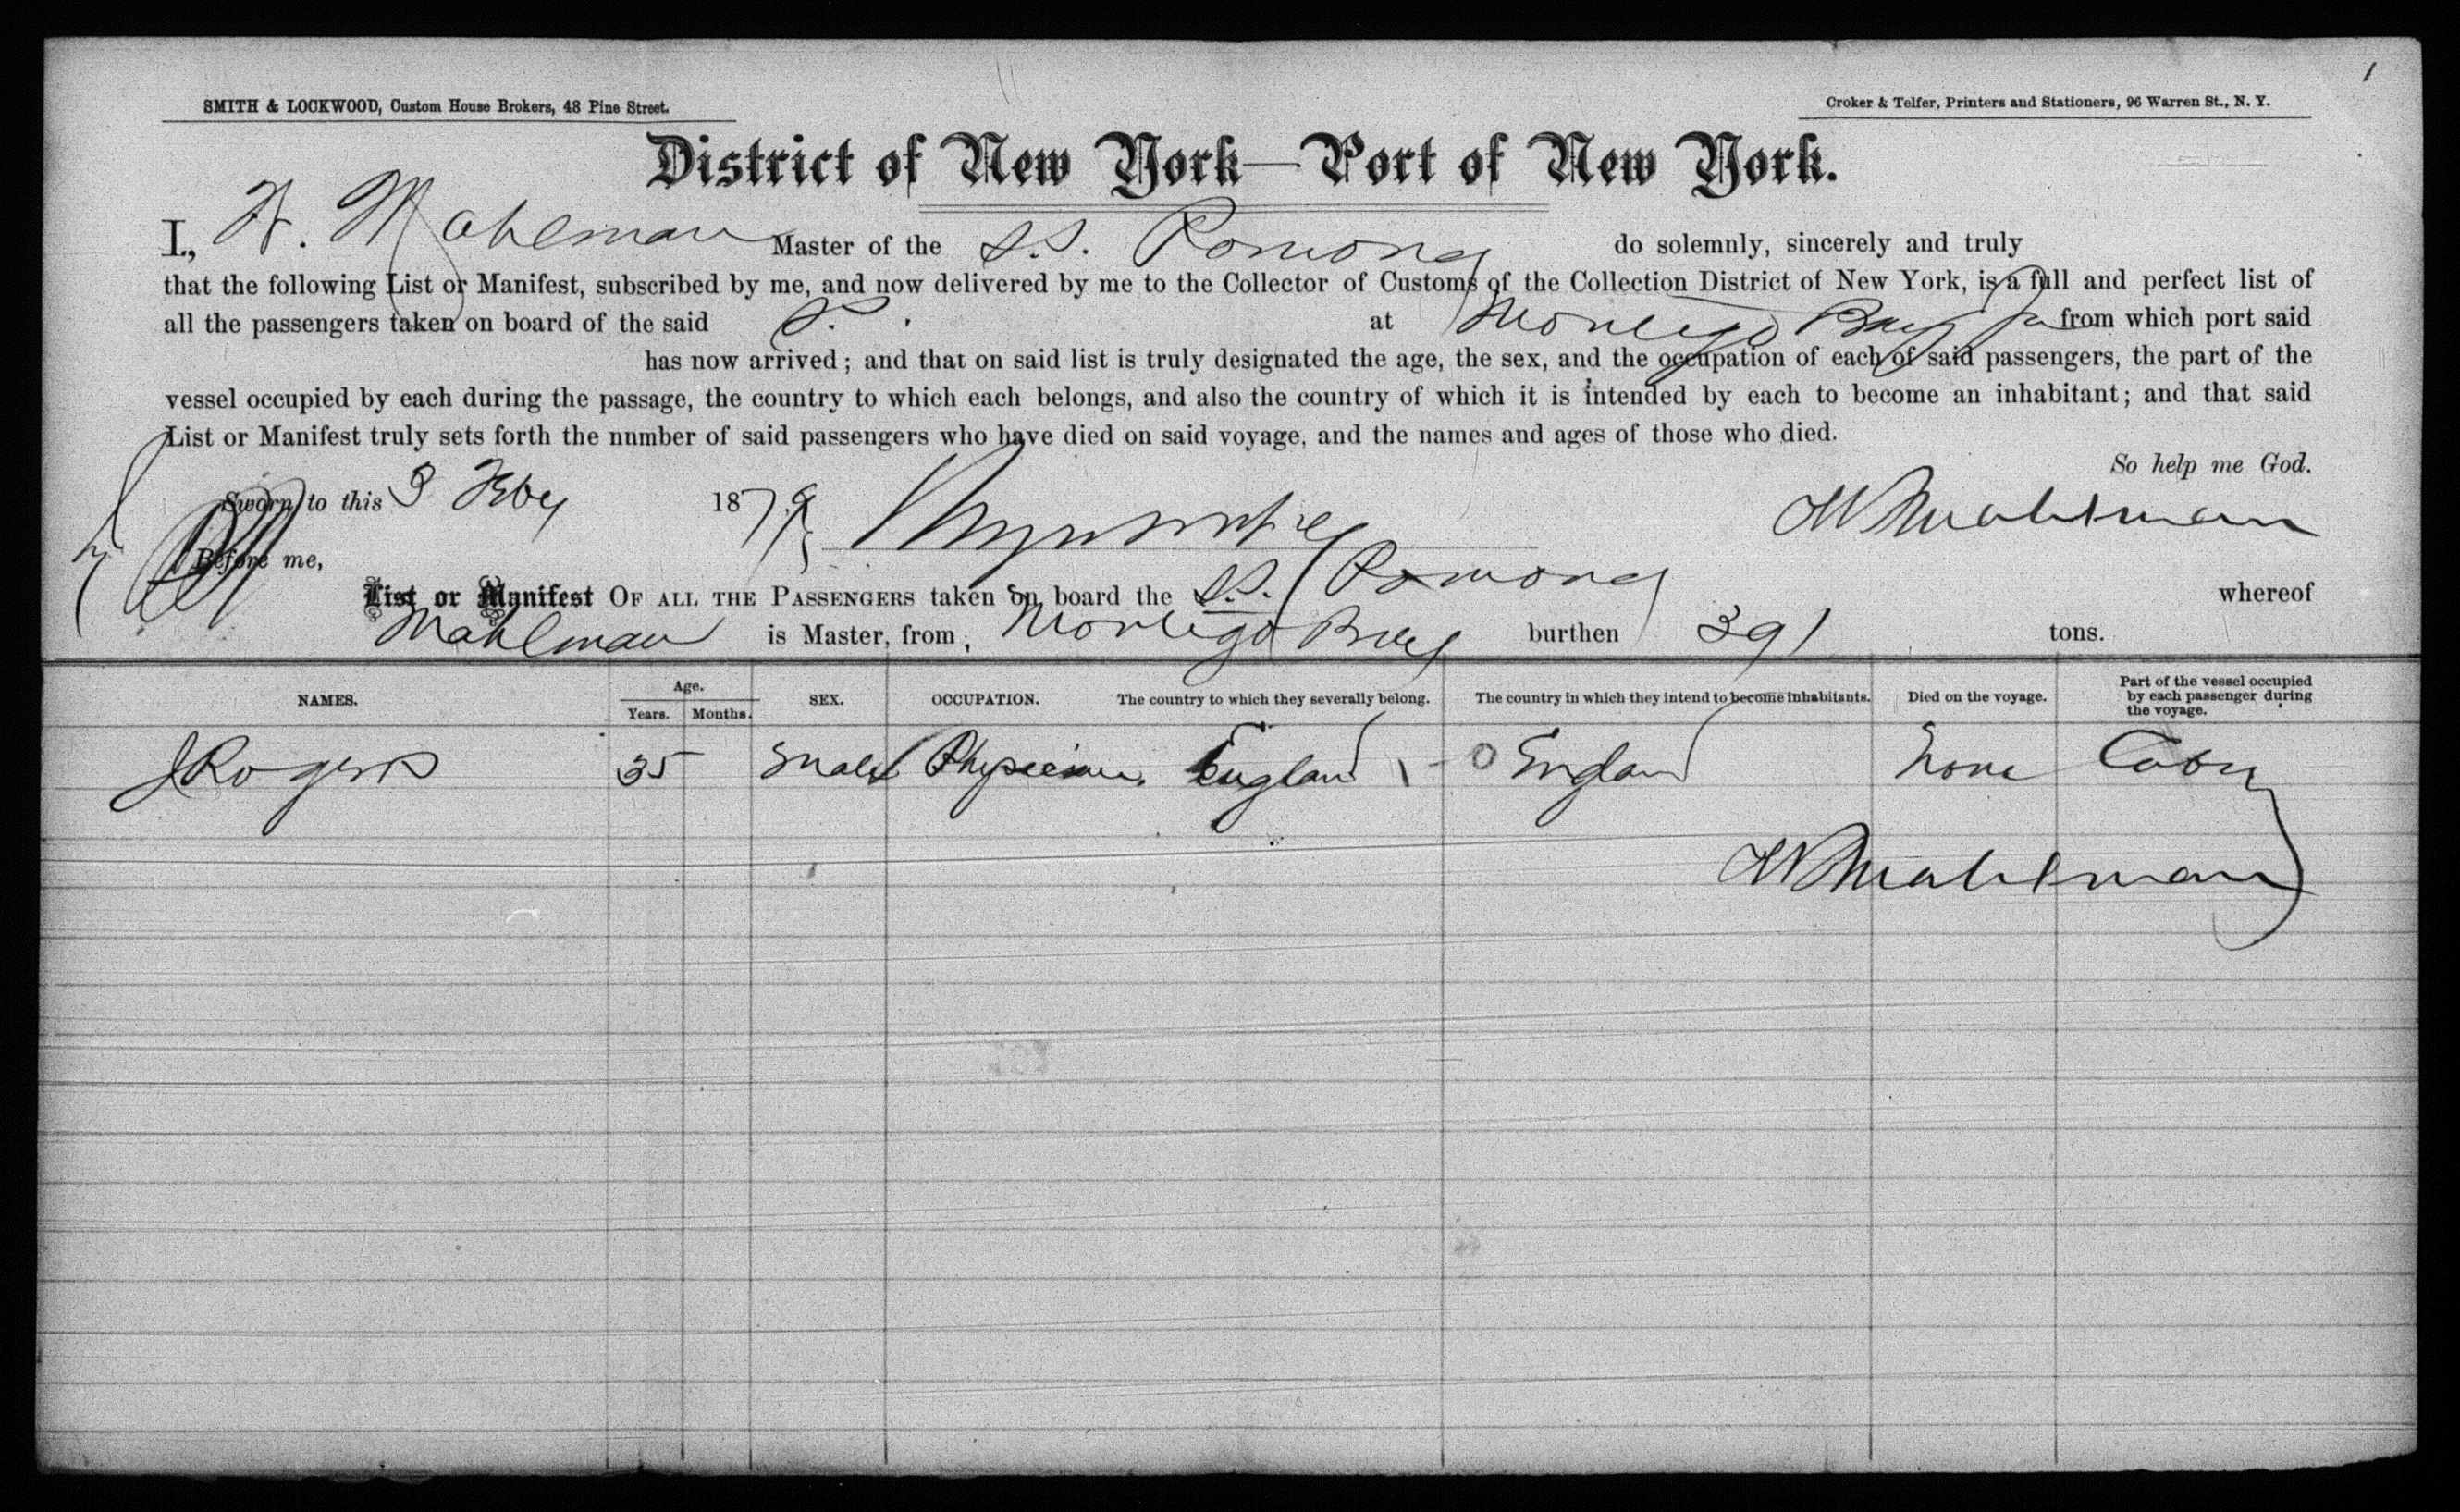 1
SMITH & LOCKWOOD, Custom House Brokers, 48 Pine Street.
Croker & Telfer, Printers and Stationers, 96 Warren St., N. Y.
District of New York—Port of New York.
I, W. Mahlman Master of the S.S. Pomona do solemnly, sincerely and truly
that the following List or Manifest, subscribed by me, and now delivered by me to the Collector of Customs of the Collection District of New York, is a full and perfect list of
all the passengers taken on board of the said S. at Montego Bay Ja from which port said
has now arrived; and that on said list is truly designated the age, the sex, and the occupation of each of said passengers, the part of the
vessel occupied by each during the passage, the country to which each belongs, and also the country of which it is intended by each to become an inhabitant; and that said
List or Manifest truly sets forth the number of said passengers who have died on said voyage, and the names and ages of those who died.
So help me God.
Sworn to this 3 Feby 1879 W Mahlman
Before me,
List or Manifest OF ALL THE PASSENGERS taken on board the S.S. Pomona whereof
Mahlman is Master, from Montego Bay burthen 391 tons.
NAMES. Age. Years. Months. SEX. OCCUPATION. The country to which they severally belong. The country in which they intend to become inhabitants. Died on the voyage. Part of the vessel occupied by each passenger during the voyage.
J Rogers 35 Male Physician England England None Cabin
W Mahlman